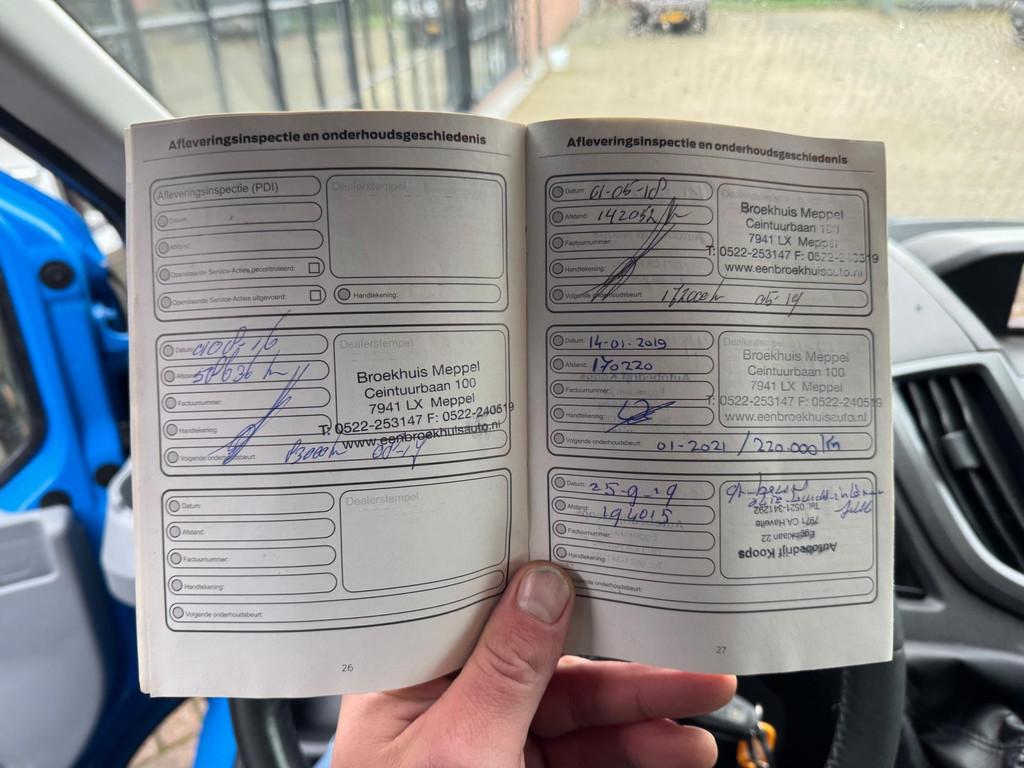 Afleveringsinspectie en onderhoudsgeschiedenis
Afleveringsinspectie (PDI)
Dealerstempel
Datum:
Afstand:
Openstaande Service-Acties gecontroleerd:
Openstaande Service-Acties uitgevoerd:
Handtekening:
Datum:
Afstand:
Factuurnummer:
Handtekening:
Volgende onderhoudsbeurt:
Dealerstempel
Broekhuis Meppel
Ceintuurbaan 100
7941 LX Meppel
T: 0522-253147 F: 0522-240519
www.eenbroekhuisauto.nl
Datum:
Afstand:
Factuurnummer:
Handtekening:
Volgende onderhoudsbeurt:
Dealerstempel
26
Afleveringsinspectie en onderhoudsgeschiedenis
Datum: 01-05-18
Afstand: 142052
Factuurnummer:
Handtekening:
Volgende onderhoudsbeurt: 172000 05-19
Broekhuis Meppel
Ceintuurbaan 100
7941 LX Meppel
T: 0522-253147 F: 0522-240519
www.eenbroekhuisauto.nl
Datum: 14-01-2019
Afstand: 170220
Factuurnummer:
Handtekening:
Volgende onderhoudsbeurt: 01-2021 / 220.000 km
Dealerstempel
Broekhuis Meppel
Ceintuurbaan 100
7941 LX Meppel
T: 0522-253147 F: 0522-240519
www.eenbroekhuisauto.nl
Datum: 25-9-19
Afstand: 194015
Factuurnummer:
Handtekening:
Volgende onderhoudsbeurt:
Autobedrijf Koops
Egginklaan 22
7971 CA Havelte
Tel: 0521-341292
27